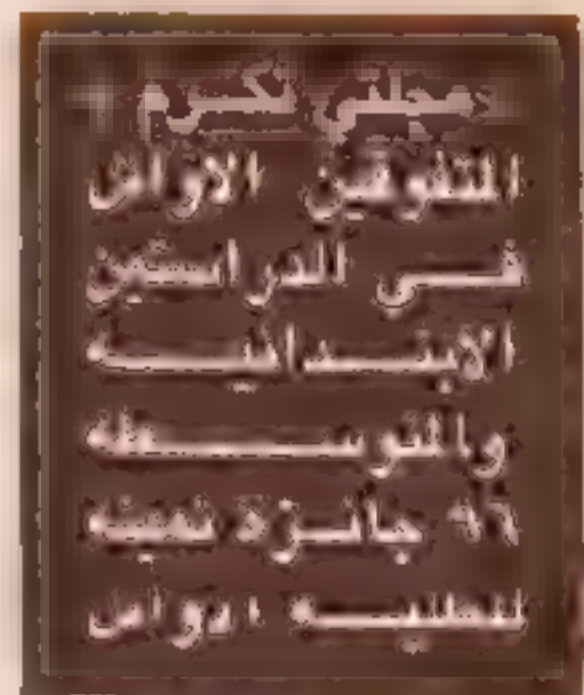 مجلتي تكرم
المتفوقين الاوائل
في الدراستين
الابتدائية
والمتوسطة
٩٦ جائزة ثمينة
للطلبة الاوائل